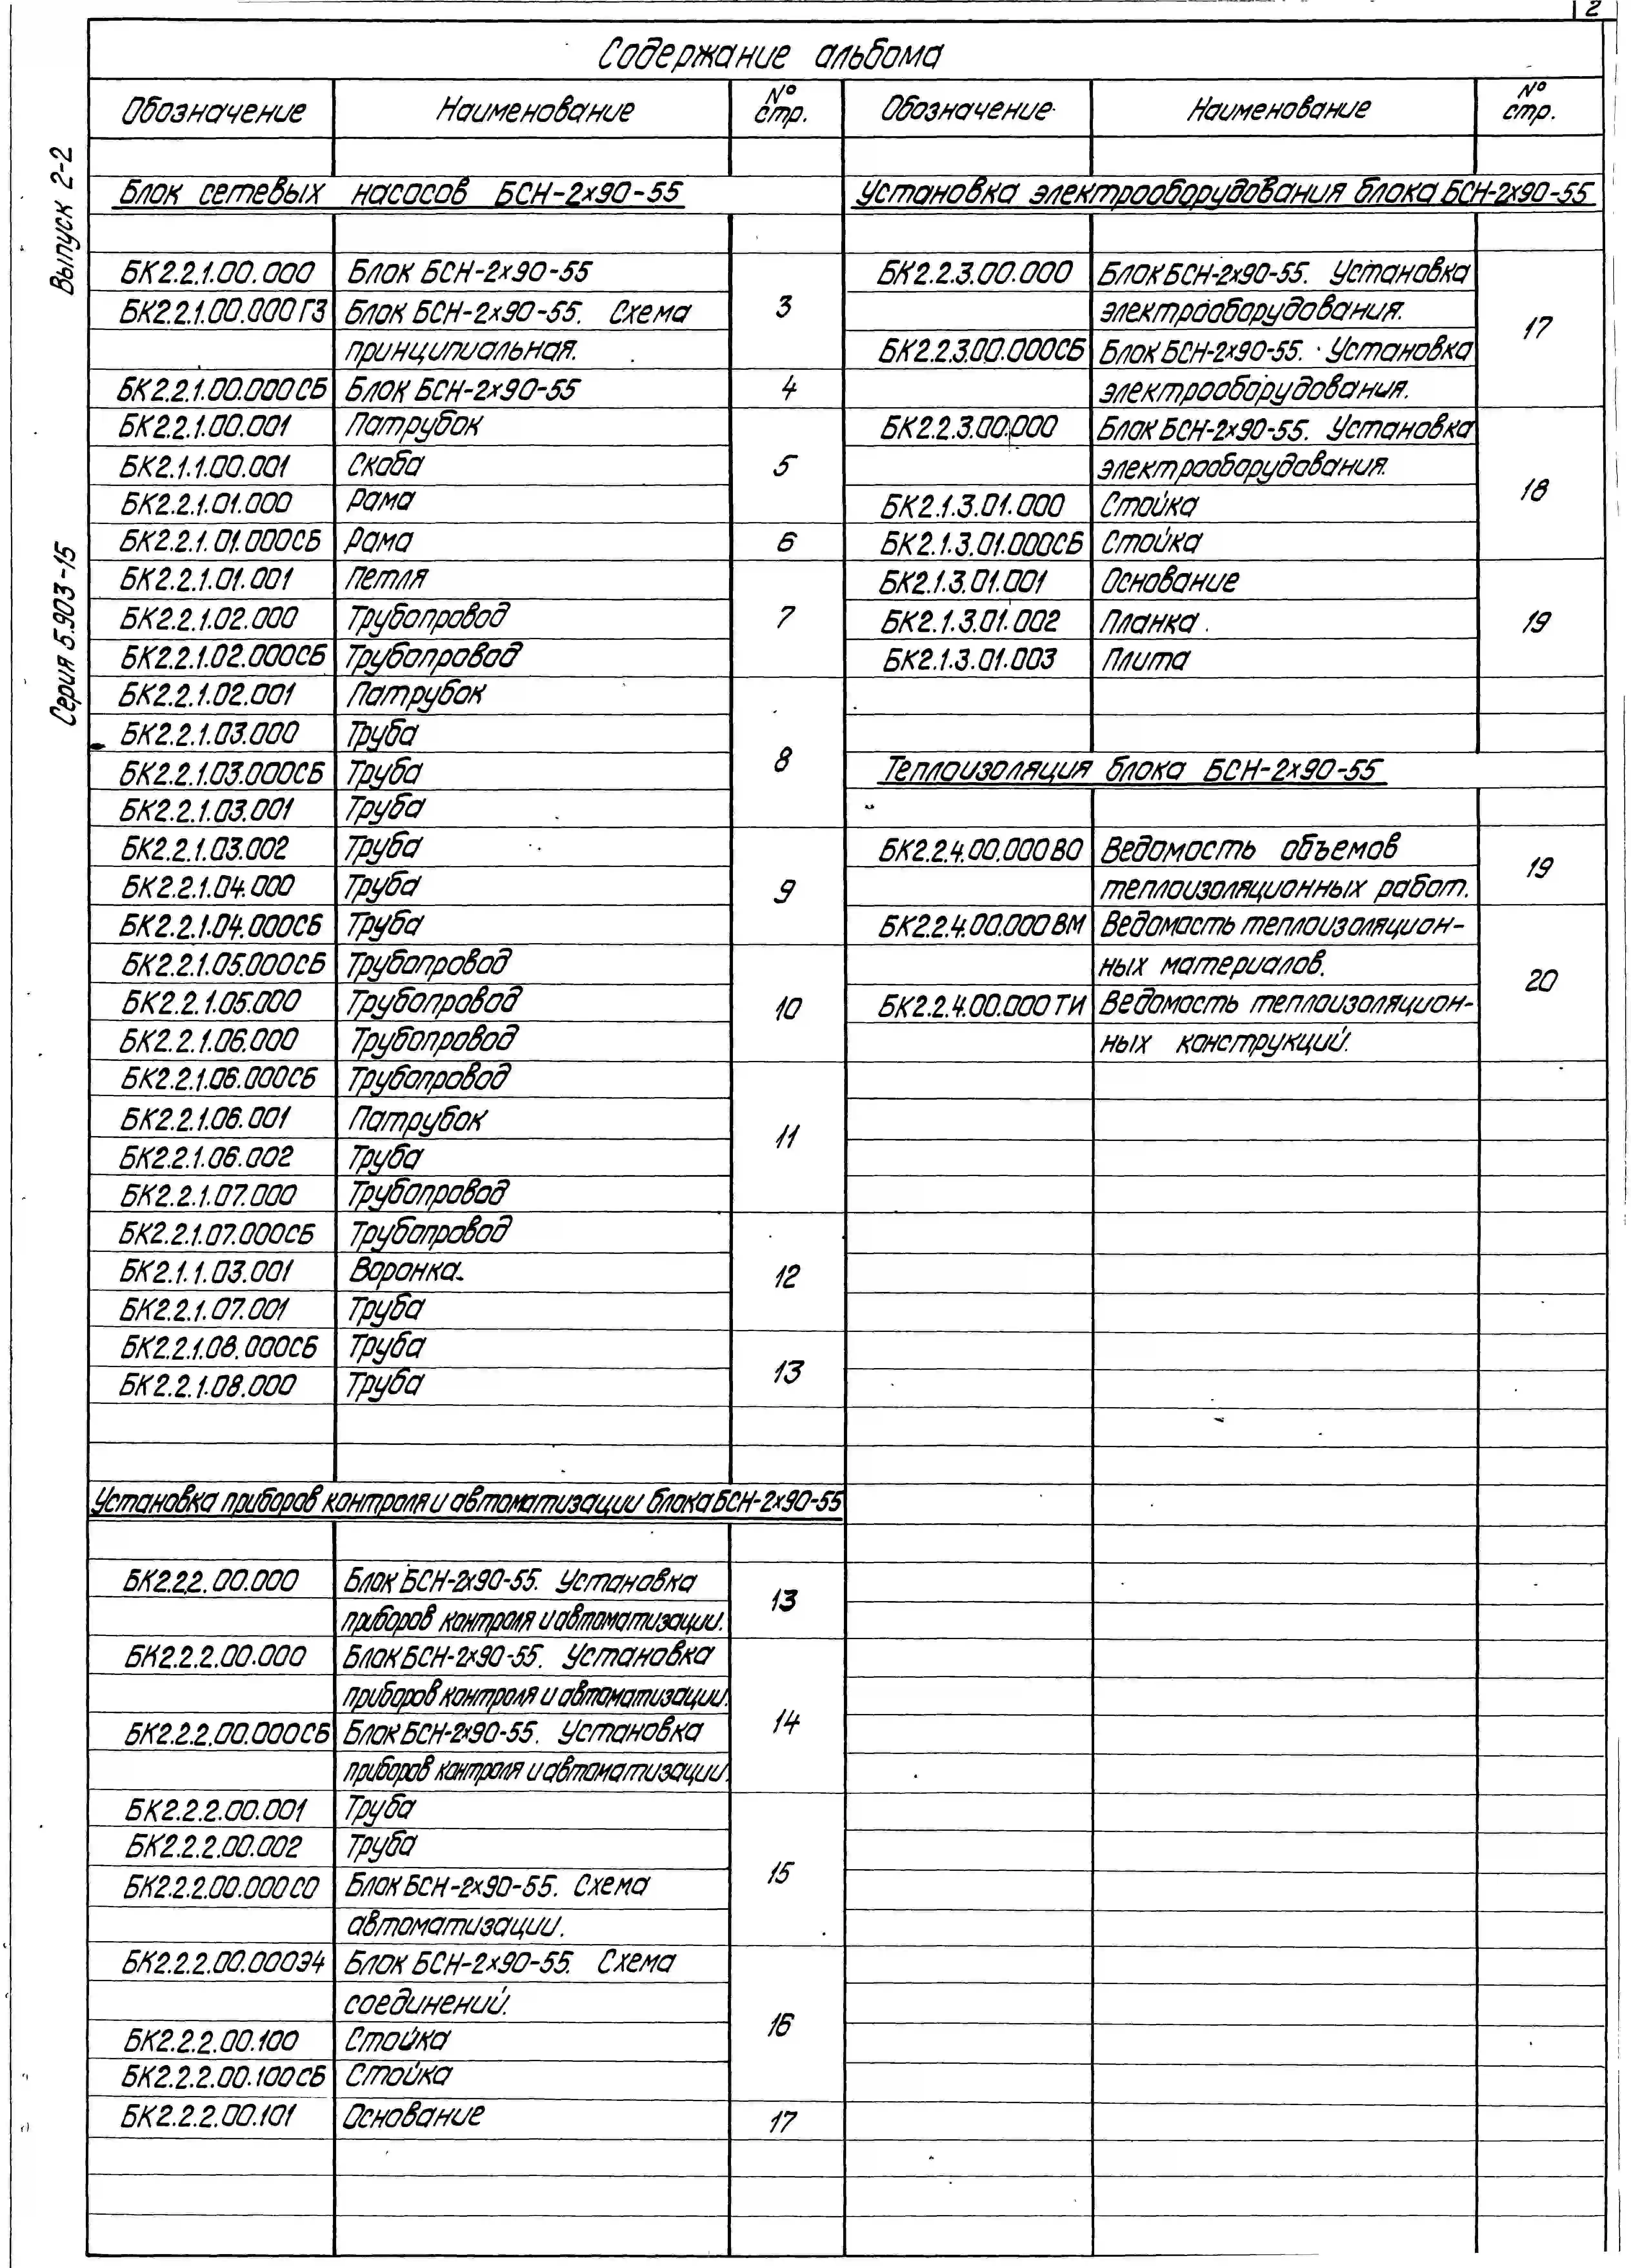 2
Содержание альбома
Выпуск 2-2
Серия 5.903-15
Обозначение Наименование № стр.
Блок сетевых насосов БСН-2х90-55
БК2.2.1.00.000 Блок БСН-2х90-55
БК2.2.1.00.000ГЗ Блок БСН-2х90-55. Схема 3
принципиальная.
БК2.2.1.00.000СБ Блок БСН-2х90-55 4
БК2.2.1.00.001 Патрубок
БК2.1.1.00.001 Скоба 5
БК2.2.1.01.000 Рама
БК2.2.1.01.000СБ Рама 6
БК2.2.1.01.001 Петля
БК2.2.1.02.000 Трубопровод 7
БК2.2.1.02.000СБ Трубопровод
БК2.2.1.02.001 Патрубок
БК2.2.1.03.000 Труба
БК2.2.1.03.000СБ Труба 8
БК2.2.1.03.001 Труба
БК2.2.1.03.002 Труба
БК2.2.1.04.000 Труба 9
БК2.2.1.04.000СБ Труба
БК2.2.1.05.000СБ Трубопровод
БК2.2.1.05.000 Трубопровод 10
БК2.2.1.06.000 Трубопровод
БК2.2.1.06.000СБ Трубопровод
БК2.2.1.06.001 Патрубок 11
БК2.2.1.06.002 Труба
БК2.2.1.07.000 Трубопровод
БК2.2.1.07.000СБ Трубопровод
БК2.1.1.03.001 Воронка. 12
БК2.2.1.07.001 Труба
БК2.2.1.08.000СБ Труба 13
БК2.2.1.08.000 Труба
Установка приборов контроля и автоматизации блока БСН-2х90-55
БК2.2.2.00.000 Блок БСН-2х90-55. Установка 13
приборов контроля и автоматизации.
БК2.2.2.00.000 Блок БСН-2х90-55. Установка
приборов контроля и автоматизации.
БК2.2.2.00.000СБ Блок БСН-2х90-55. Установка 14
приборов контроля и автоматизации.
БК2.2.2.00.001 Труба
БК2.2.2.00.002 Труба
БК2.2.2.00.000СО Блок БСН-2х90-55. Схема 15
автоматизации.
БК2.2.2.00.000Э4 Блок БСН-2х90-55. Схема
соединений.
БК2.2.2.00.100 Стойка 16
БК2.2.2.00.100СБ Стойка
БК2.2.2.00.101 Основание 17
Обозначение Наименование № стр.
Установка электрооборудования блока БСН-2х90-55
БК2.2.3.00.000 Блок БСН-2х90-55. Установка
электрооборудования. 17
БК2.2.3.00.000СБ Блок БСН-2х90-55. Установка
электрооборудования.
БК2.2.3.00.000 Блок БСН-2х90-55. Установка
электрооборудования.
БК2.1.3.01.000 Стойка 18
БК2.1.3.01.000СБ Стойка
БК2.1.3.01.001 Основание
БК2.1.3.01.002 Планка. 19
БК2.1.3.01.003 Плита
Теплоизоляция блока БСН-2х90-55
БК2.2.4.00.000ВО Ведомость объемов 19
теплоизоляционных работ.
БК2.2.4.00.000ВМ Ведомость теплоизоляцион-
ных материалов. 20
БК2.2.4.00.000ТИ Ведомость теплоизоляцион-
ных конструкций.